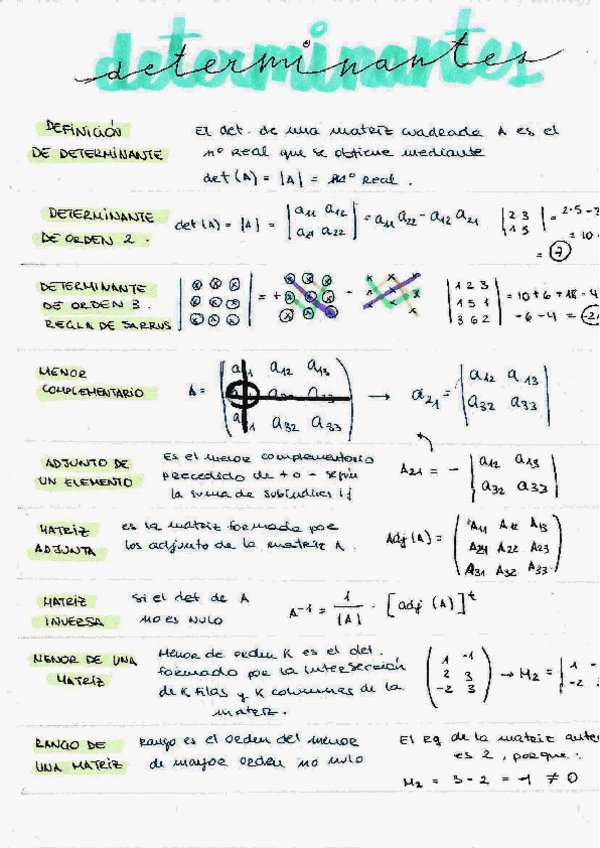 determinantes
DEFINICIÓN
DE DETERMINANTE
El det. de una matriz cuadrada A es el
nº Real que se obtiene mediante
det (A) = |A| = nº Real.
DETERMINANTE
DE ORDEN 2.
det (A) = |A| = | a11 a12 | = a11 a22 - a12 a21
| a21 a22 |
| 2 3 | = 2·5 - 3
| 1 5 | = 10
= 7
DETERMINANTE
DE ORDEN 3.
REGLA DE SARRUS
| 1 2 3 |
| 1 5 1 | = 10 + 6 + 18 - 4
| 3 6 2 | - 6 - 4 =
MENOR
COMPLEMENTARIO
A = ( a11 a12 a13 )
( a22 a23 )
( a31 a32 a33 )
→ a21 = | a12 a13 |
| a32 a33 |
ADJUNTO DE
UN ELEMENTO
Es el menor complementario
precedido de + o - según
la suma de subíndices ij
A21 = - | a12 a13 |
| a32 a33 |
MATRIZ
ADJUNTA
es la matriz formada por
los adjunto de la matriz A.
Adj (A) = ( A11 A12 A13 )
( A21 A22 A23 )
( A31 A32 A33 )
MATRIZ
INVERSA
Si el det de A
no es nulo
A-1 = 1/|A| · [adj (A)]t
MENOR DE UNA
MATRIZ
Menor de orden K es el det.
formado por la intersección
de K filas y K columnas de la
matriz.
( 1 -1 )
( 2 3 ) → M2 = | 1 -
( -2 3 ) | -2
RANGO DE
UNA MATRIZ
Rango es el orden del menor
de mayor orden no nulo
El Rg de la matriz ante
es 2, porque:
M2 = 3 - 2 = -1 ≠ 0